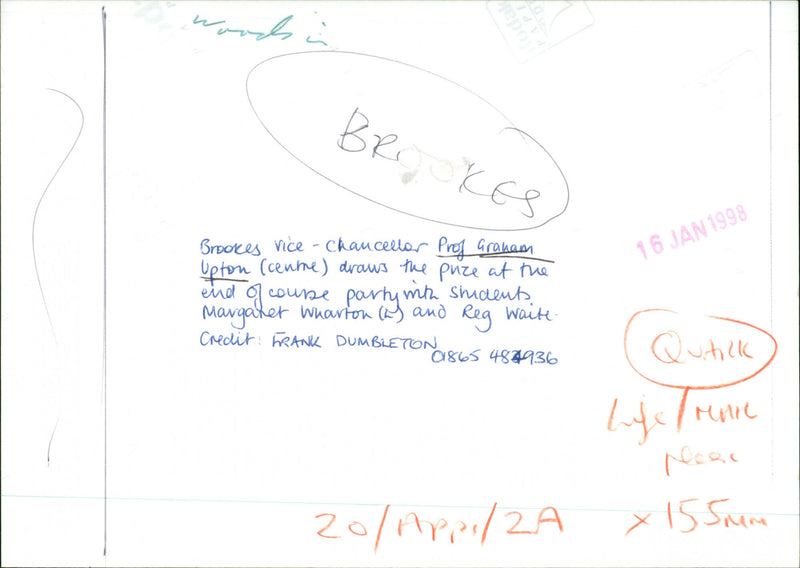 Woods in
BROOKES
16 JAN 1998
Brookes Vice-Chancellor Prof Graham
Upton (centre) draws the prize at the
end of course party with students
Margaret Wharton (L) and Reg Waite.
Credit: FRANK DUMBLETON
01865 484936
Life/
please
20/App1/2A x155mm